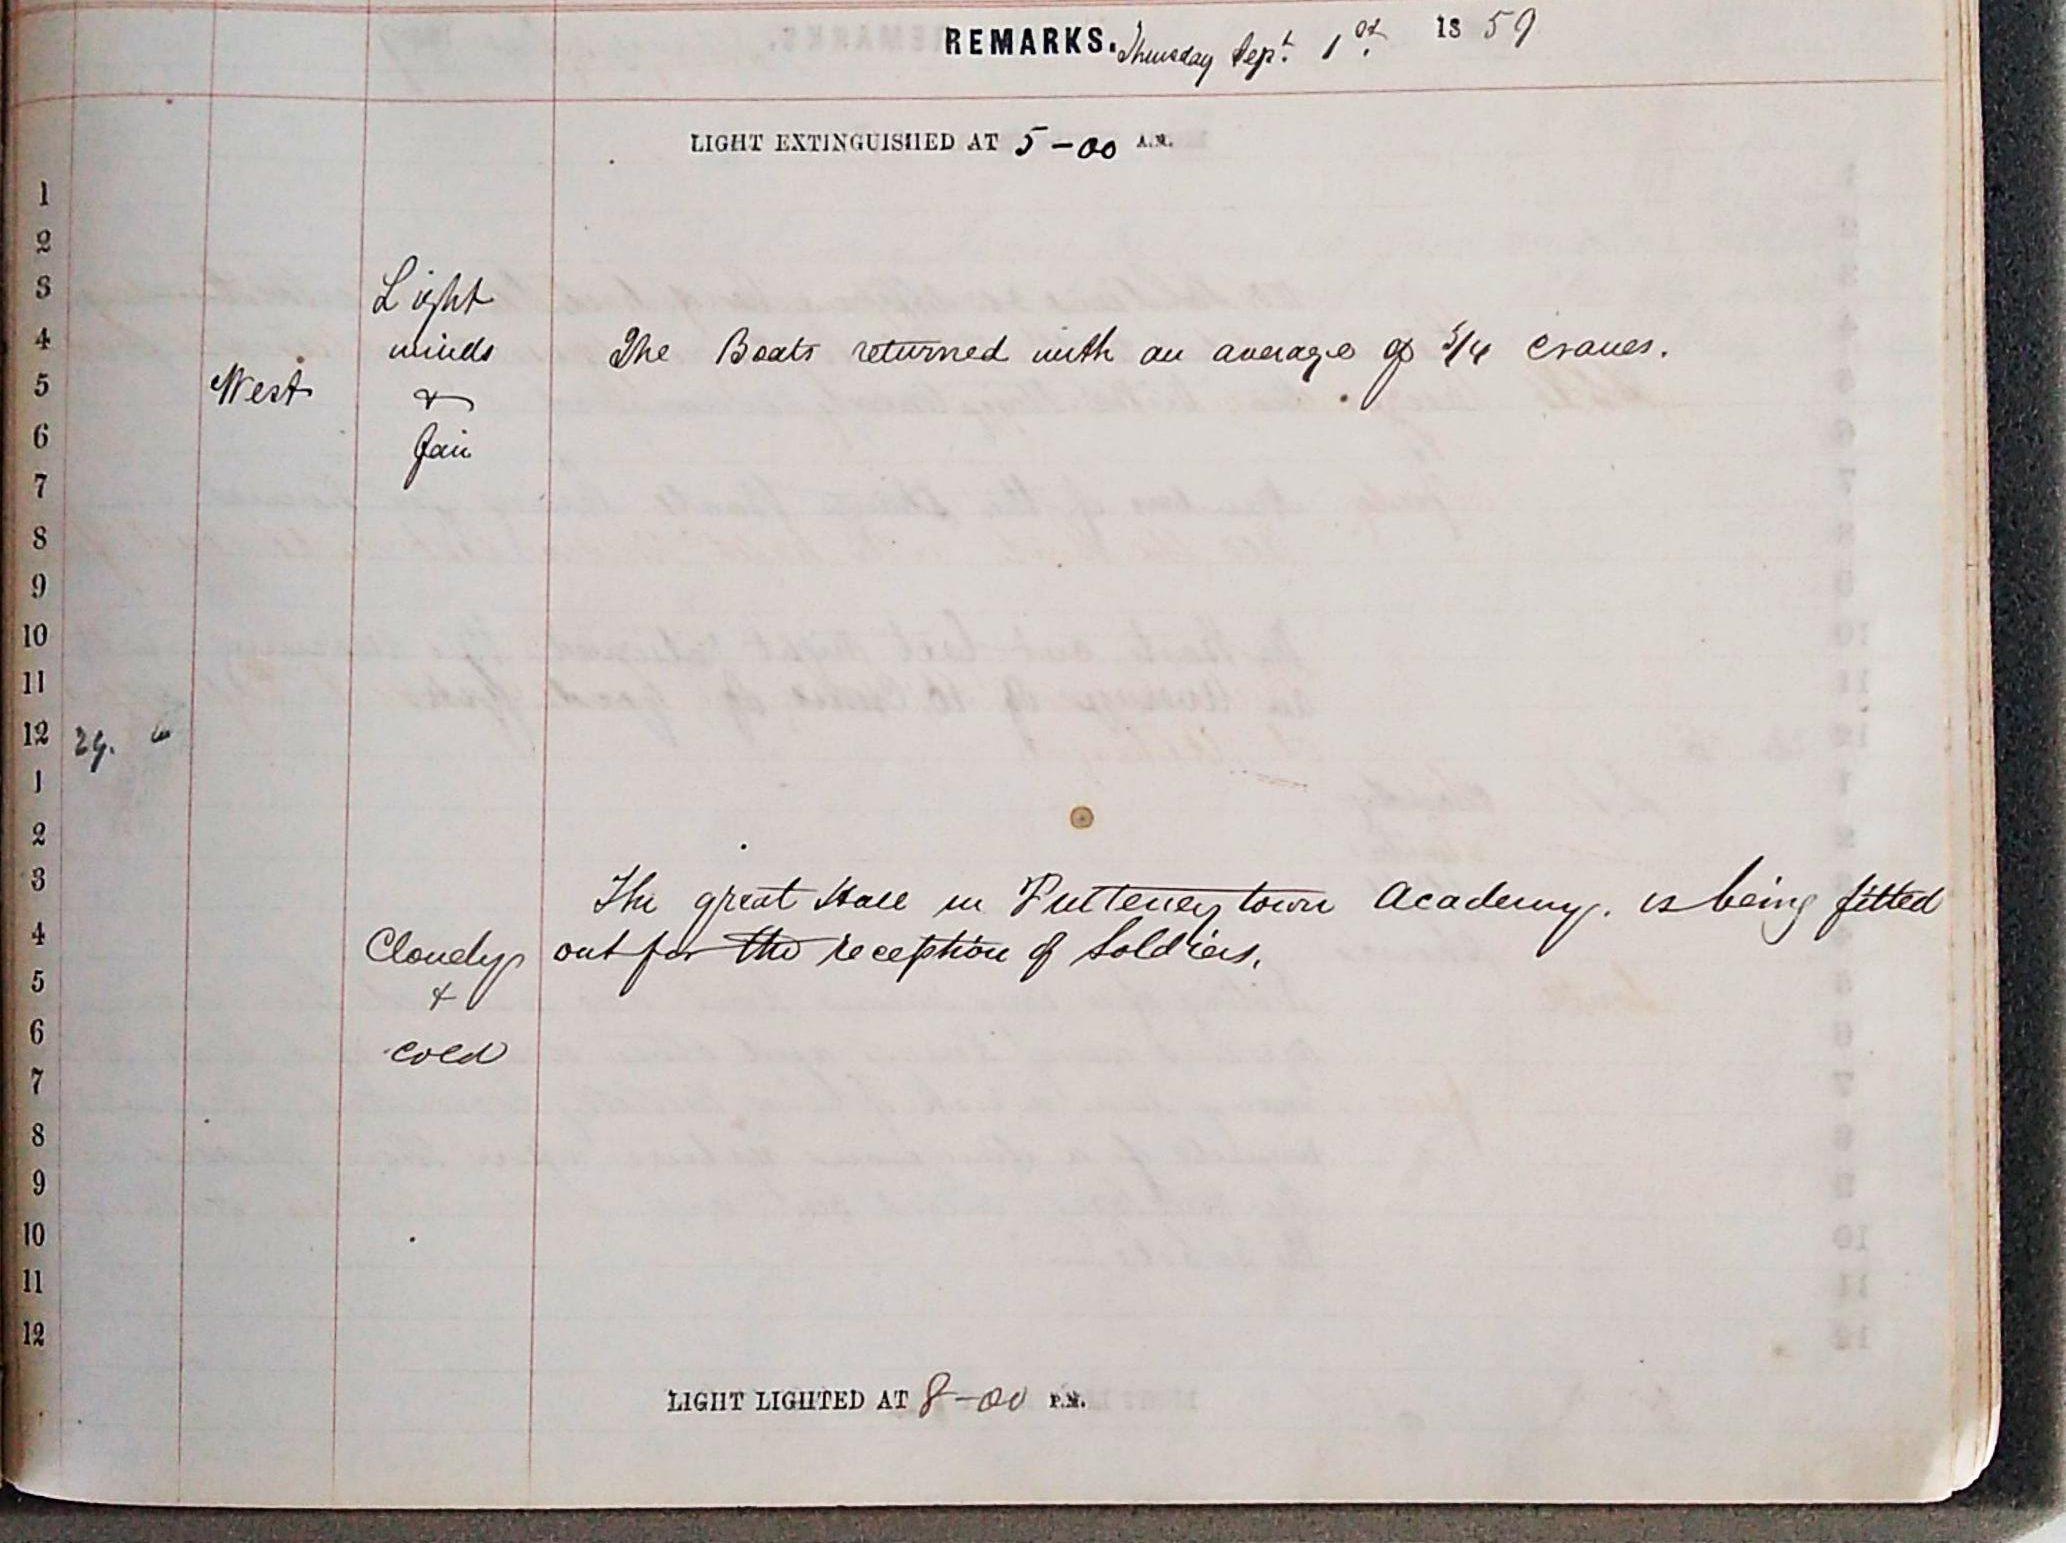 REMARKS. Thursday Sept. 1st. 1859
LIGHT EXTINGUISHED AT 5-00 A.M.
1
2
3 Light
4 winds The Boats returned with an average of 3/4 Cranes.
5 West &
6 fair
7
8
9
10
11
12 29.
1
2
3 The great Hall in Pulteneytown Academy. is being fitted
4 Cloudy out for the reception of Soldiers.
5 &
6 cold
7
8
9
10
11
12
LIGHT LIGHTED AT 8-00 P.M.